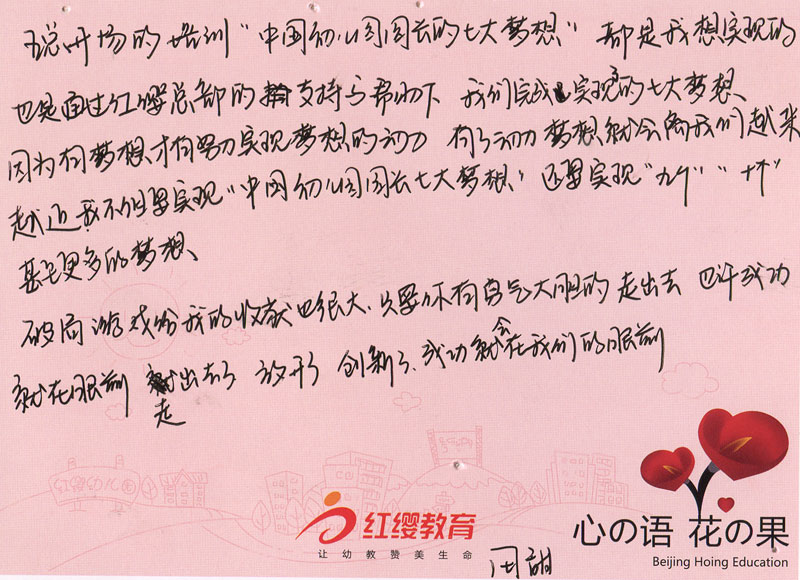 现场的培训“中国幼儿园园长的七大梦想”都是我想实现的
也是通过红缨总部的支持与帮助下 我们完成实现的七大梦想、
因为有梦想才有努力实现梦想的动力 有了动力梦想就会离我们越来
越近 我不但要实现“中国幼儿园园长七大梦想”还要实现“九个”“十个”
甚至更多的梦想、
破局游戏给我的收获也很大、只要你有勇气大胆的走出去 也许成功
就在眼前 走出去了 放开了 创新了、成功就会在我们的眼前
红缨幼儿园
红缨教育
让幼教赞美生命
心の语 花の果
Beijing Hoing Education
周甜